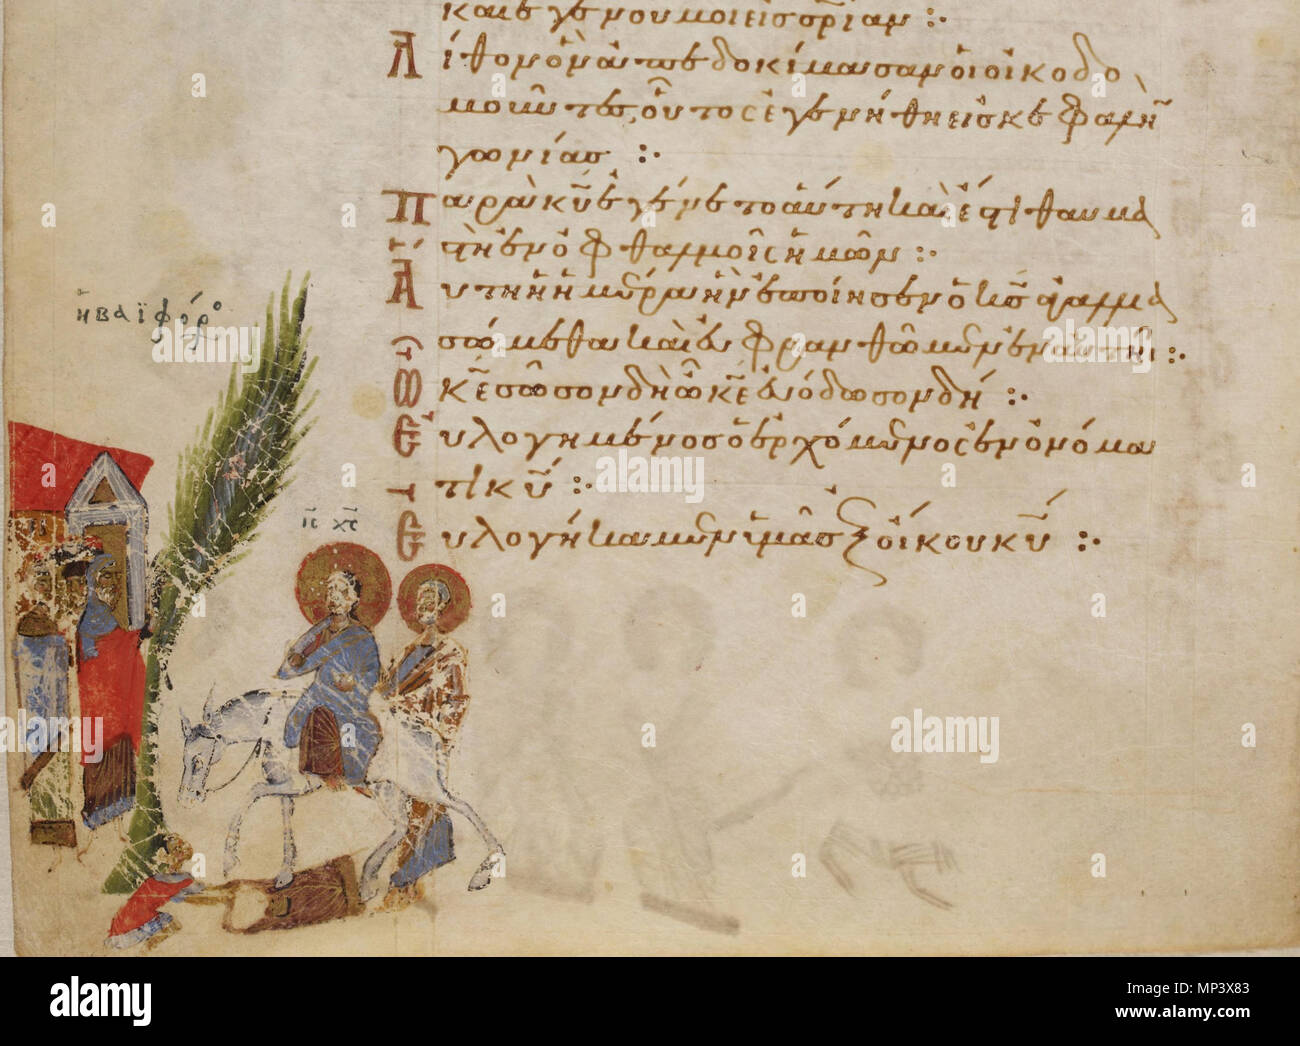 καὶ ἐγένου μοι εἰς σρίαν :·
Λίθον ὃν ἀπεδοκίμασαν οἱ οἰκοδο
μοῦντες, οὗτος ἐγενήθη εἰς κεφαλὴν
γωνίας :·
Παρὰ κῦ ἐγένετο αὕτη καὶ ἔστι θαυμα
στὴ ἐν ὀφθαλμοῖς ἡμῶν :·
Αὕτη ἡ ἡμέρα ἣν ἐποίησεν ὁ κς ἀγαλλια
σώμεθα καὶ εὐφρανθῶμεν ἐν αὐτῆι :·
Ὦ κε σῶσον δὴ ὦ κε εὐόδωσον δή :·
Εὐλογημένος ὁ ἐρχόμενος ἐν ὀνόμα
τι κυ :·
Εὐλογήκαμεν ὑμᾶς ἐξ οἴκου κυ :·
ἡ βαϊφόρο
ις χς
alamy
alamy stock photo
Image ID: MP3X83
www.alamy.com